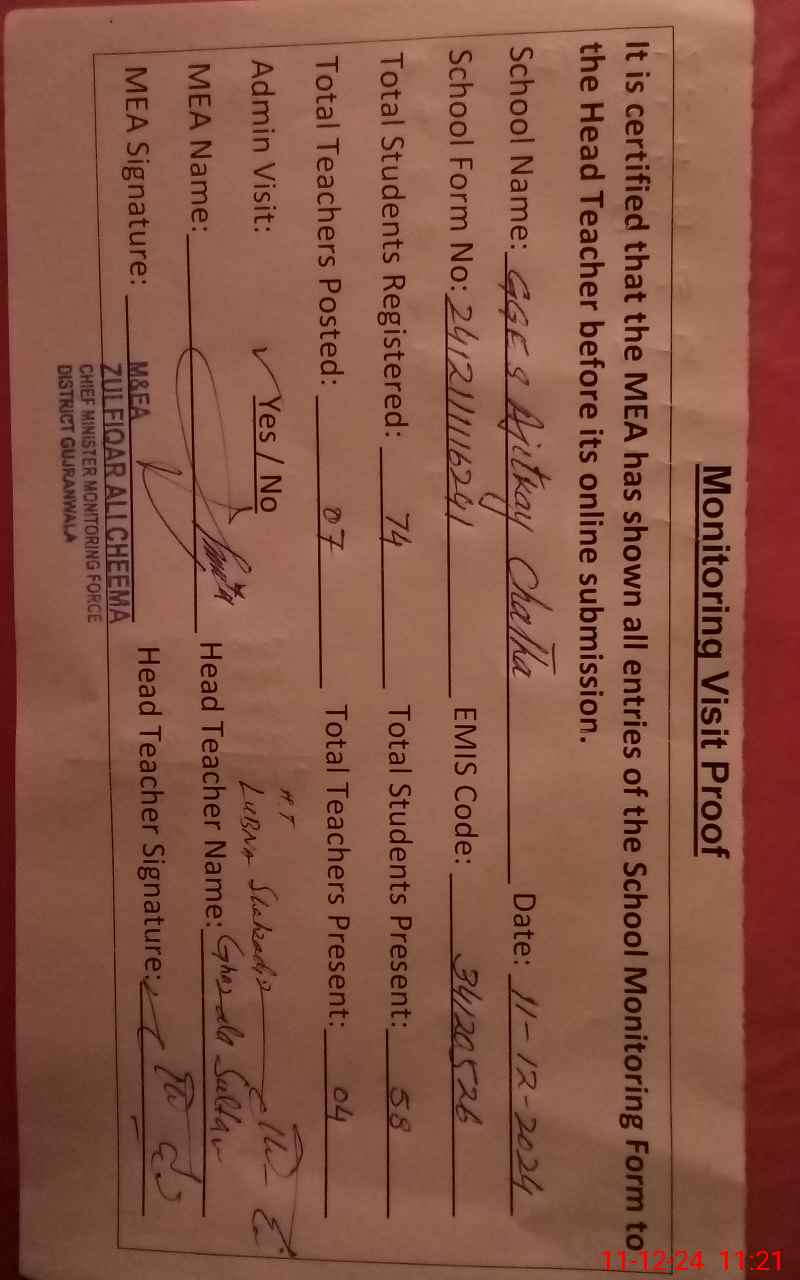 Monitoring Visit Proof
It is certified that the MEA has shown all entries of the School Monitoring Form to
the Head Teacher before its online submission.
School Name: GGES Ajitkay Chatha Date: 11-12-2024
School Form No: EMIS Code: 34120526
Total Students Registered: 74 Total Students Present: 58
Total Teachers Posted: 07 Total Teachers Present: 04
Admin Visit: ✓ Yes / No
H.T
LUBNA Shahzadi
MEA Name: Head Teacher Name: Ghazala Sultan
MEA Signature: Head Teacher Signature:
M&EA
ZULFIQAR ALI CHEEMA
CHIEF MINISTER MONITORING FORCE
DISTRICT GUJRANWALA
11-12-24 11:21